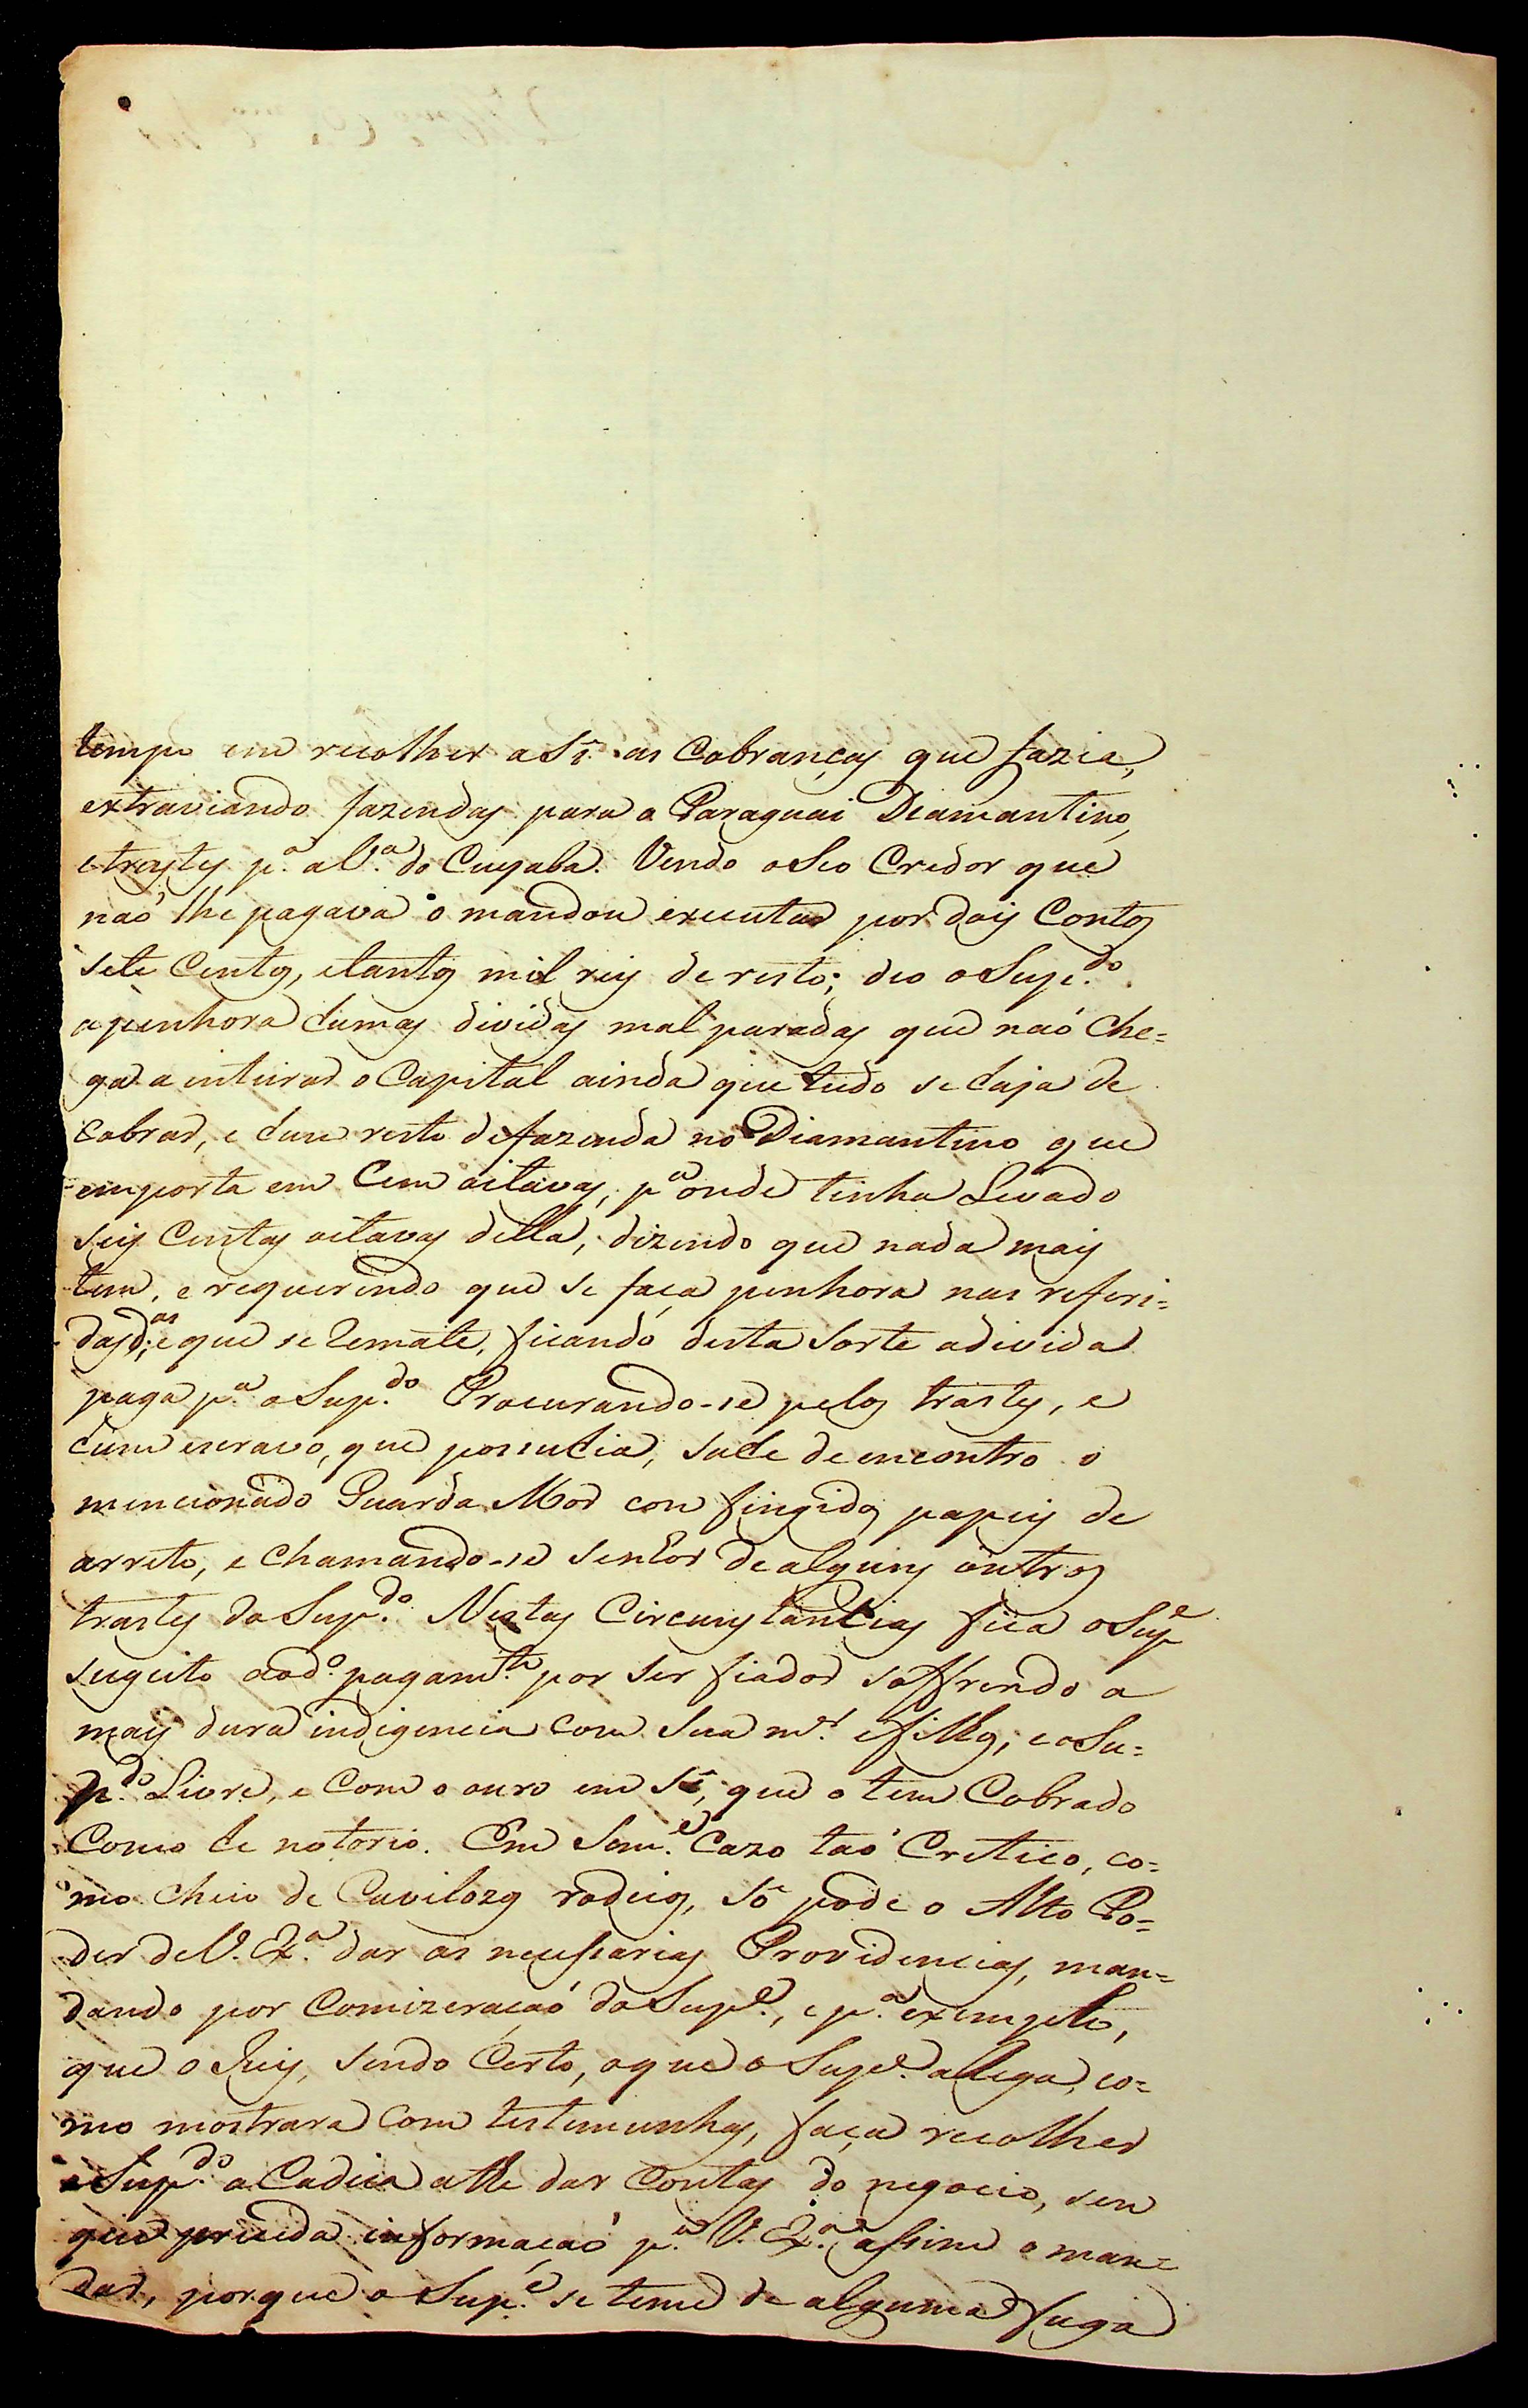 tempo em recolher aSi as Cobranças que fazia,
extraviando fazendas para o Paraguai Diamantino,
etrastes p.ª aV.ª do Cuyaba. Vendo oSeo Credor que
naõ lhe pagava o mandou executar por dois Contos
sete Centos, etantos mil reis de resto; deo oSup.do
apenhora humas dividas mal paradas que naõ che=
ga a inteirar o Capital ainda que tudo se haja de
cobrar, e hum resto defazenda no Diamantino que
emporta em Cem oitavas, p.ª onde tinha Levado
seis Centas oitavas della, dizendo que nada mais
tem, e requerendo que se faça penhora nas referi=
das d.as, e que se Remate, ficando desta Sorte adivida
paga p.ª oSup.do Procurando-se pelos trastes, e
hum escravo, que possuhia, sahe de encontro o
mencionado Guarda Mor com fingidos papeis de
arresto, e chamando-se senhor dealguns outros
trastes do Sup.do Nestas Circunstancias fica oSup.e
sugeito aod.o pagam.to por ser fiador soffrendo a
mais dura indigencia com Sua m.er efilhos; e oSu=
p.do Livre, e Com o ouro em Si, que o tem Cobrado
Como he notorio. Em Sem.e Cazo taõ Critico, co=
mo cheio de Cavilozos rodeios, Só pode o Alto Po=
der deV. Ex.ª dar as necessarias Providencias, man=
dando por Comizeraçaõ do Sup.e, e p.ª exemplo,
que o Juis, sendo Certo, oque o Sup.e alega, co=
mo mostrara Com testemunhas, faça recolher
oSup.do a Cadeia athe dar Contas do negocio, sem
que preceda informaçaõ p.ª V. Ex.ª assim o man=
dar, porque o Sup.e se teme de alguma fuga